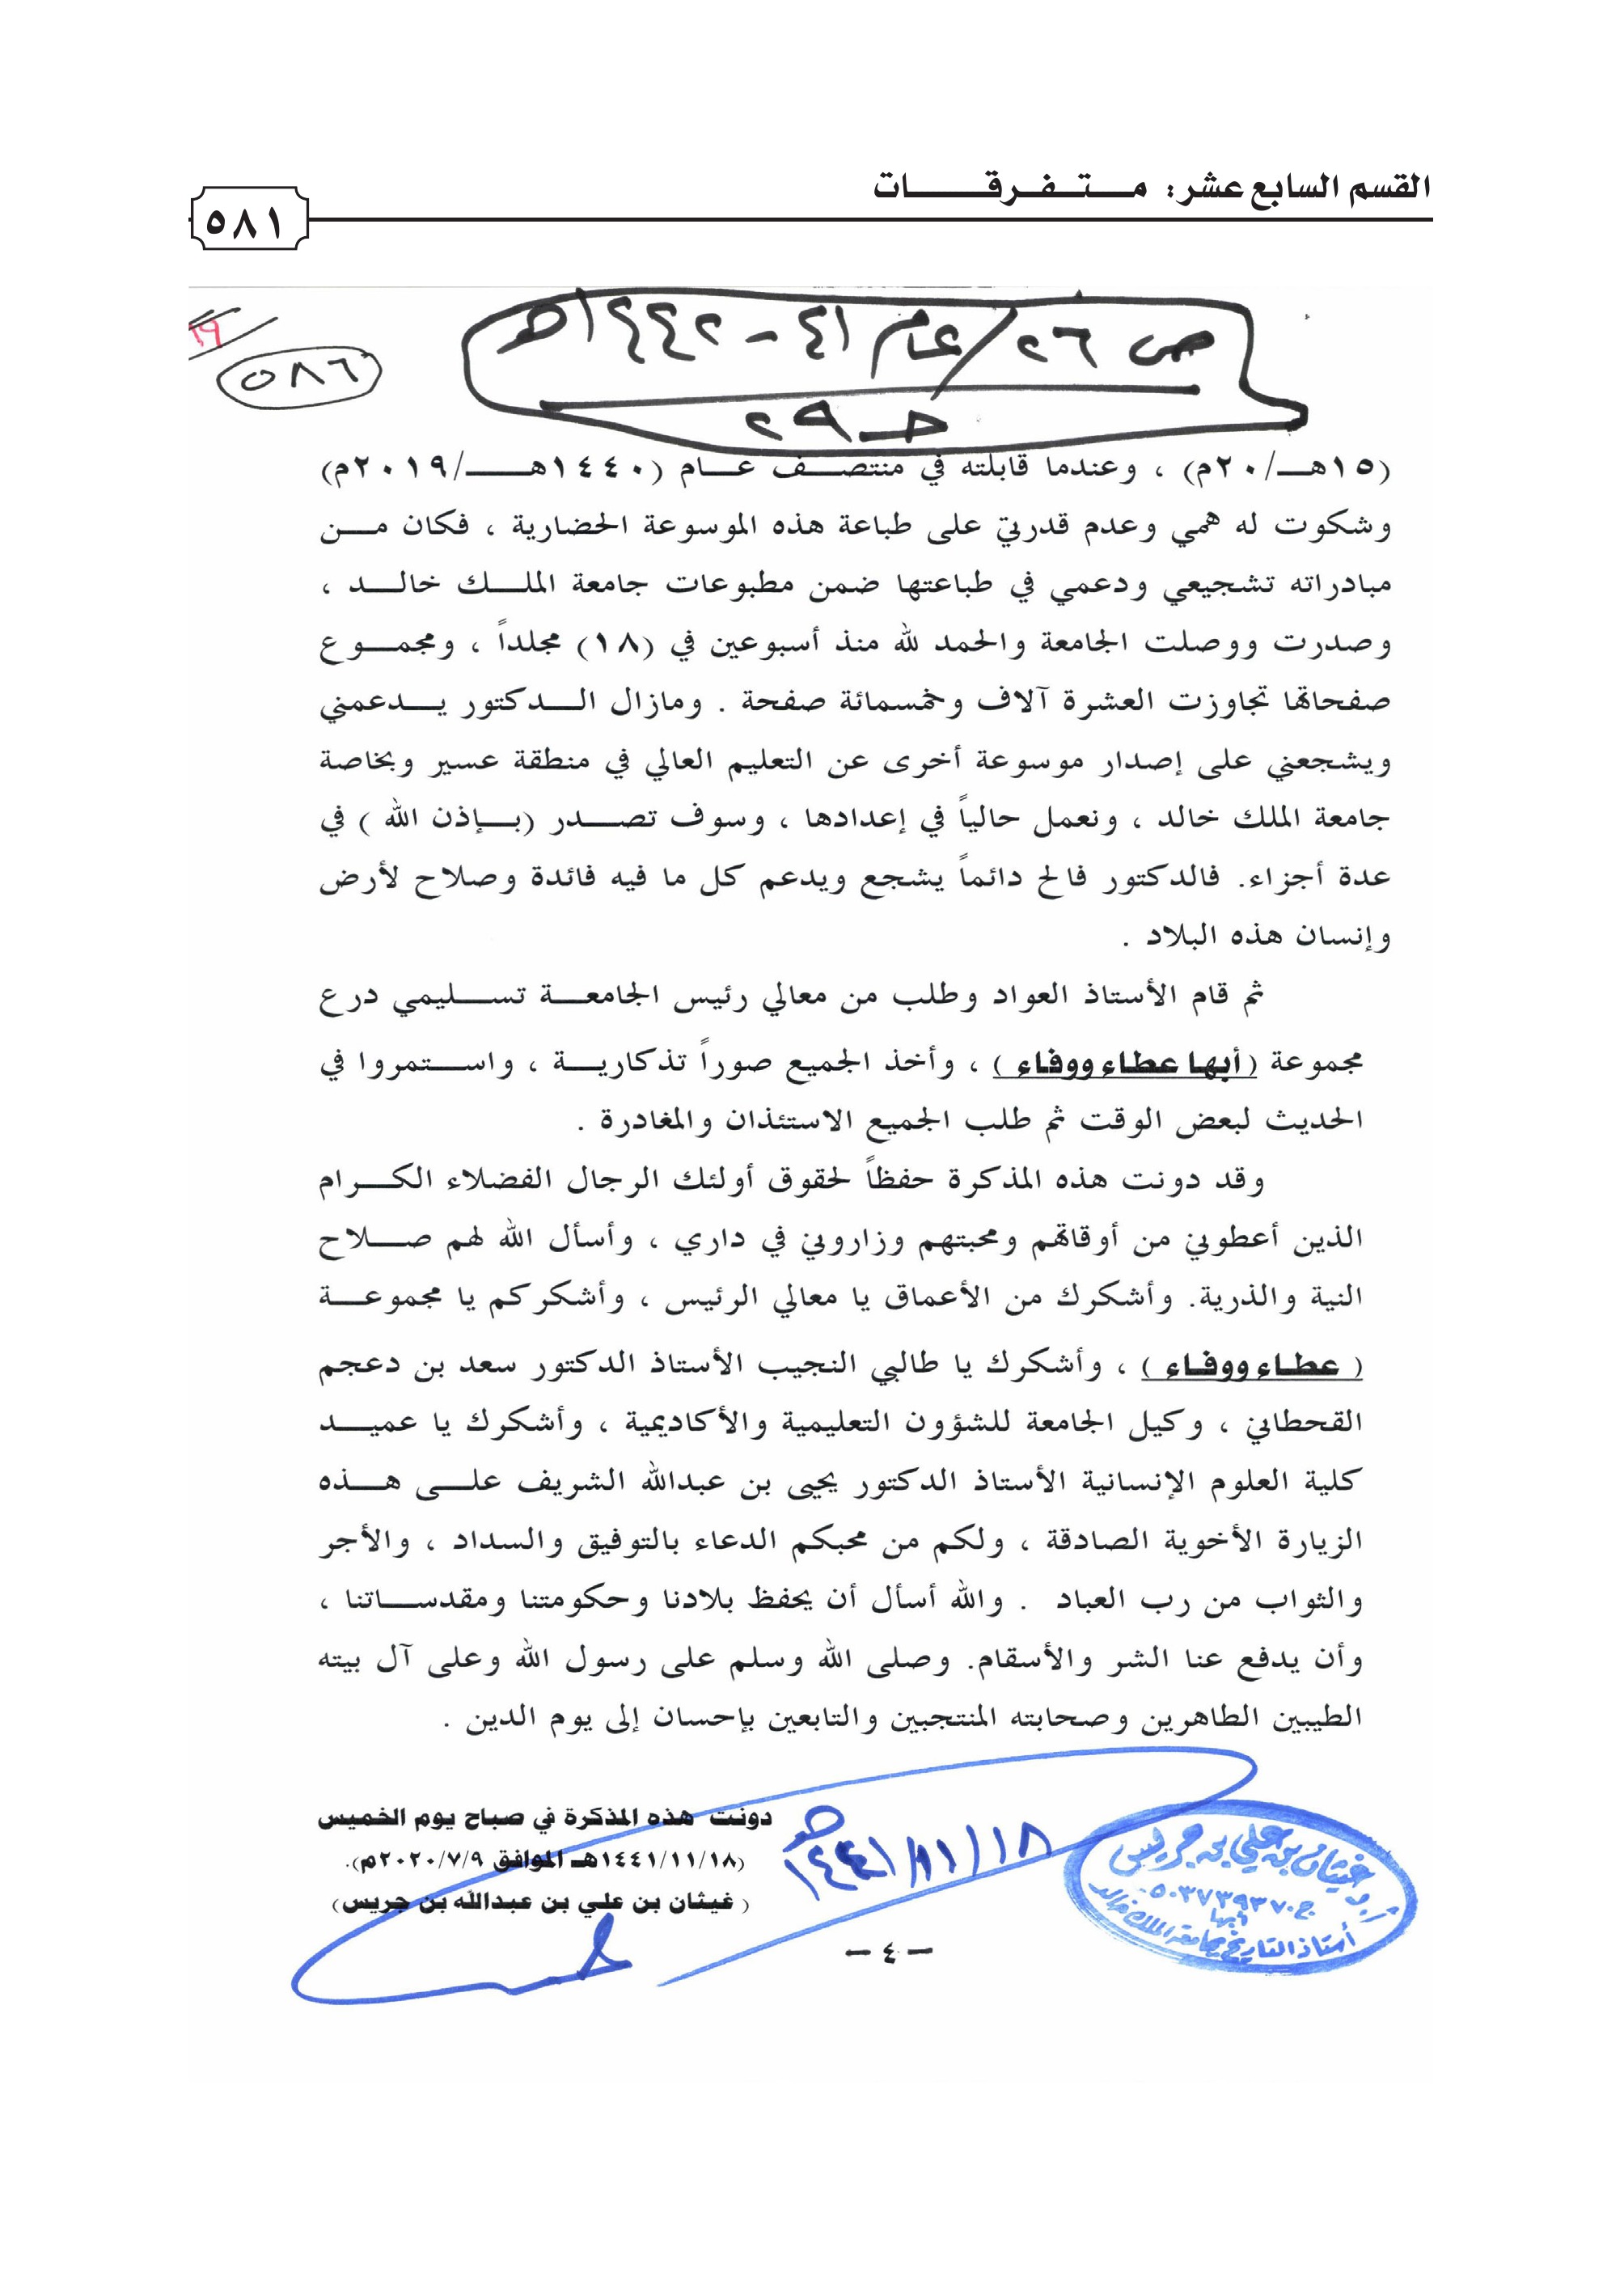 القسم السابع عشر: متفرقات
٥٨١
ص ٢٦/عام ٤١ - ١٤٤٢هـ
٥٨٦
حـ ٢٩
(١٥هـ/٢٠م) ، وعندما قابلته في منتصف عام (١٤٤٠هـ/٢٠١٩م)
وشكوت له همي وعدم قدرتي على طباعة هذه الموسوعة الحضارية ، فكان من
مبادراته تشجيعي ودعمي في طباعتها ضمن مطبوعات جامعة الملك خالد ،
وصدرت ووصلت الجامعة والحمد لله منذ أسبوعين في (١٨) مجلداً ، ومجموع
صفحاتها تجاوزت العشرة آلاف وخمسمائة صفحة . ومازال الدكتور يدعمني
ويشجعني على إصدار موسوعة أخرى عن التعليم العالي في منطقة عسير وبخاصة
جامعة الملك خالد ، ونعمل حالياً في إعدادها ، وسوف تصدر (بإذن الله ) في
عدة أجزاء. فالدكتور فالح دائماً يشجع ويدعم كل ما فيه فائدة وصلاح لأرض
وإنسان هذه البلاد .
ثم قام الأستاذ العواد وطلب من معالي رئيس الجامعة تسليمي درع
مجموعة (أبها عطاء ووفاء ) ، وأخذ الجميع صوراً تذكارية ، واستمروا في
الحديث لبعض الوقت ثم طلب الجميع الاستئذان والمغادرة .
وقد دونت هذه المذكرة حفظاً لحقوق أولئك الرجال الفضلاء الكرام
الذين أعطوني من أوقاتهم ومحبتهم وزاروني في داري ، وأسأل الله لهم صلاح
النية والذرية. وأشكرك من الأعماق يا معالي الرئيس ، وأشكركم يا مجموعة
( عطاء ووفاء ) ، وأشكرك يا طالبي النجيب الأستاذ الدكتور سعد بن دعجم
القحطاني ، وكيل الجامعة للشؤون التعليمية والأكاديمية ، وأشكرك يا عميد
كلية العلوم الإنسانية الأستاذ الدكتور يحيى بن عبدالله الشريف على هذه
الزيارة الأخوية الصادقة ، ولكم من محبكم الدعاء بالتوفيق والسداد ، والأجر
والثواب من رب العباد . والله أسأل أن يحفظ بلادنا وحكومتنا ومقدساتنا ،
وأن يدفع عنا الشر والأسقام. وصلى الله وسلم على رسول الله وعلى آل بيته
الطيبين الطاهرين وصحابته المنتجبين والتابعين بإحسان إلى يوم الدين .
دونت هذه المذكرة في صباح يوم الخميس
(١٤٤١/١١/١٨هـ الموافق ٢٠٢٠/٧/٩م).
( غيثان بن علي بن عبدالله بن جريس)
١٤٤١/١١/١٨هـ
غيثان بن علي بن جريس
ج ٠٥٠٣٧٣٩٣٧٠
أبها
أستاذ التاريخ بجامعة الملك خالد
– ٤ –